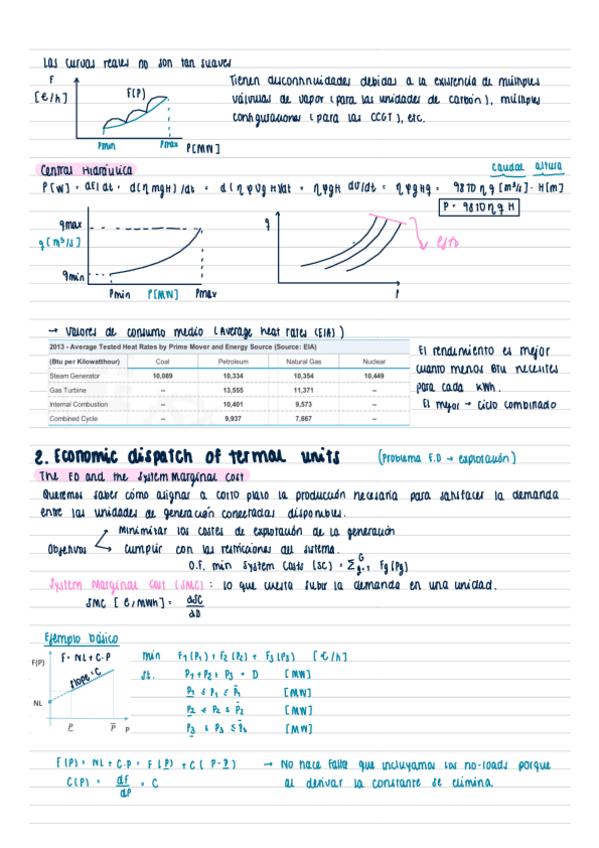 Las curvas reales no son tan suaves
F
[€/h]
F(P)
Pmin
Pmax
P[MW]
Tienen discontinuidades debidas a la existencia de múltiples
válvulas de vapor (para las unidades de carbón), múltiples
configuraciones (para las CCGT), etc.
Central Hidráulica
caudal altura
P[W] = dE/dt = d(η mgH)/dt = d(η ρVgH)/dt = ηρgH dV/dt = ηρgHq = 9810 η q [m³/s] · H[m]
P = 9810 η q H
qmax
q[m³/s]
qmin
Pmin P[MW] Pmax
q
→ Valores de consumo medio (Average heat rates (EIA))
2013 - Average Tested Heat Rates by Prime Mover and Energy Source (Source: EIA)
(Btu per Kilowatthour) Coal Petroleum Natural Gas Nuclear
Steam Generator 10,089 10,334 10,354 10,449
Gas Turbine -- 13,555 11,371 --
Internal Combustion -- 10,401 9,573 --
Combined Cycle -- 9,937 7,667 --
El rendimiento es mejor
cuanto menos Btu necesites
para cada kWh.
El mejor → ciclo combinado
2. Economic dispatch of termal units (Problema E.D → explotación)
The ED and the System Marginal Cost
Queremos saber cómo asignar a corto plazo la producción necesaria para satisfacer la demanda
entre las unidades de generación conectadas disponibles.
Objetivos
Minimizar los costes de explotación de la generación
Cumplir con las restricciones del sistema.
O.F. min System Costs (SC) = Σ G g=1 Fg(Pg)
System Marginal Cost (SMC): lo que cuesta subir la demanda en una unidad.
SMC [€/MWh] = dSC
dD
Ejemplo básico
F(P)
F = NL + C·P
slope = C
NL
P P̄ P
min F1(P1) + F2(P2) + F3(P3) [€/h]
st. P1 + P2 + P3 = D [MW]
P1 ≤ P1 ≤ P̄1 [MW]
P2 ≤ P2 ≤ P̄2 [MW]
P3 ≤ P3 ≤ P̄3 [MW]
F(P) = NL + C·P = F(P) + C(P - P) → No hace falta que incluyamos los no-loads porque
C(P) = dF = C al derivar la constante se elimina.
dP